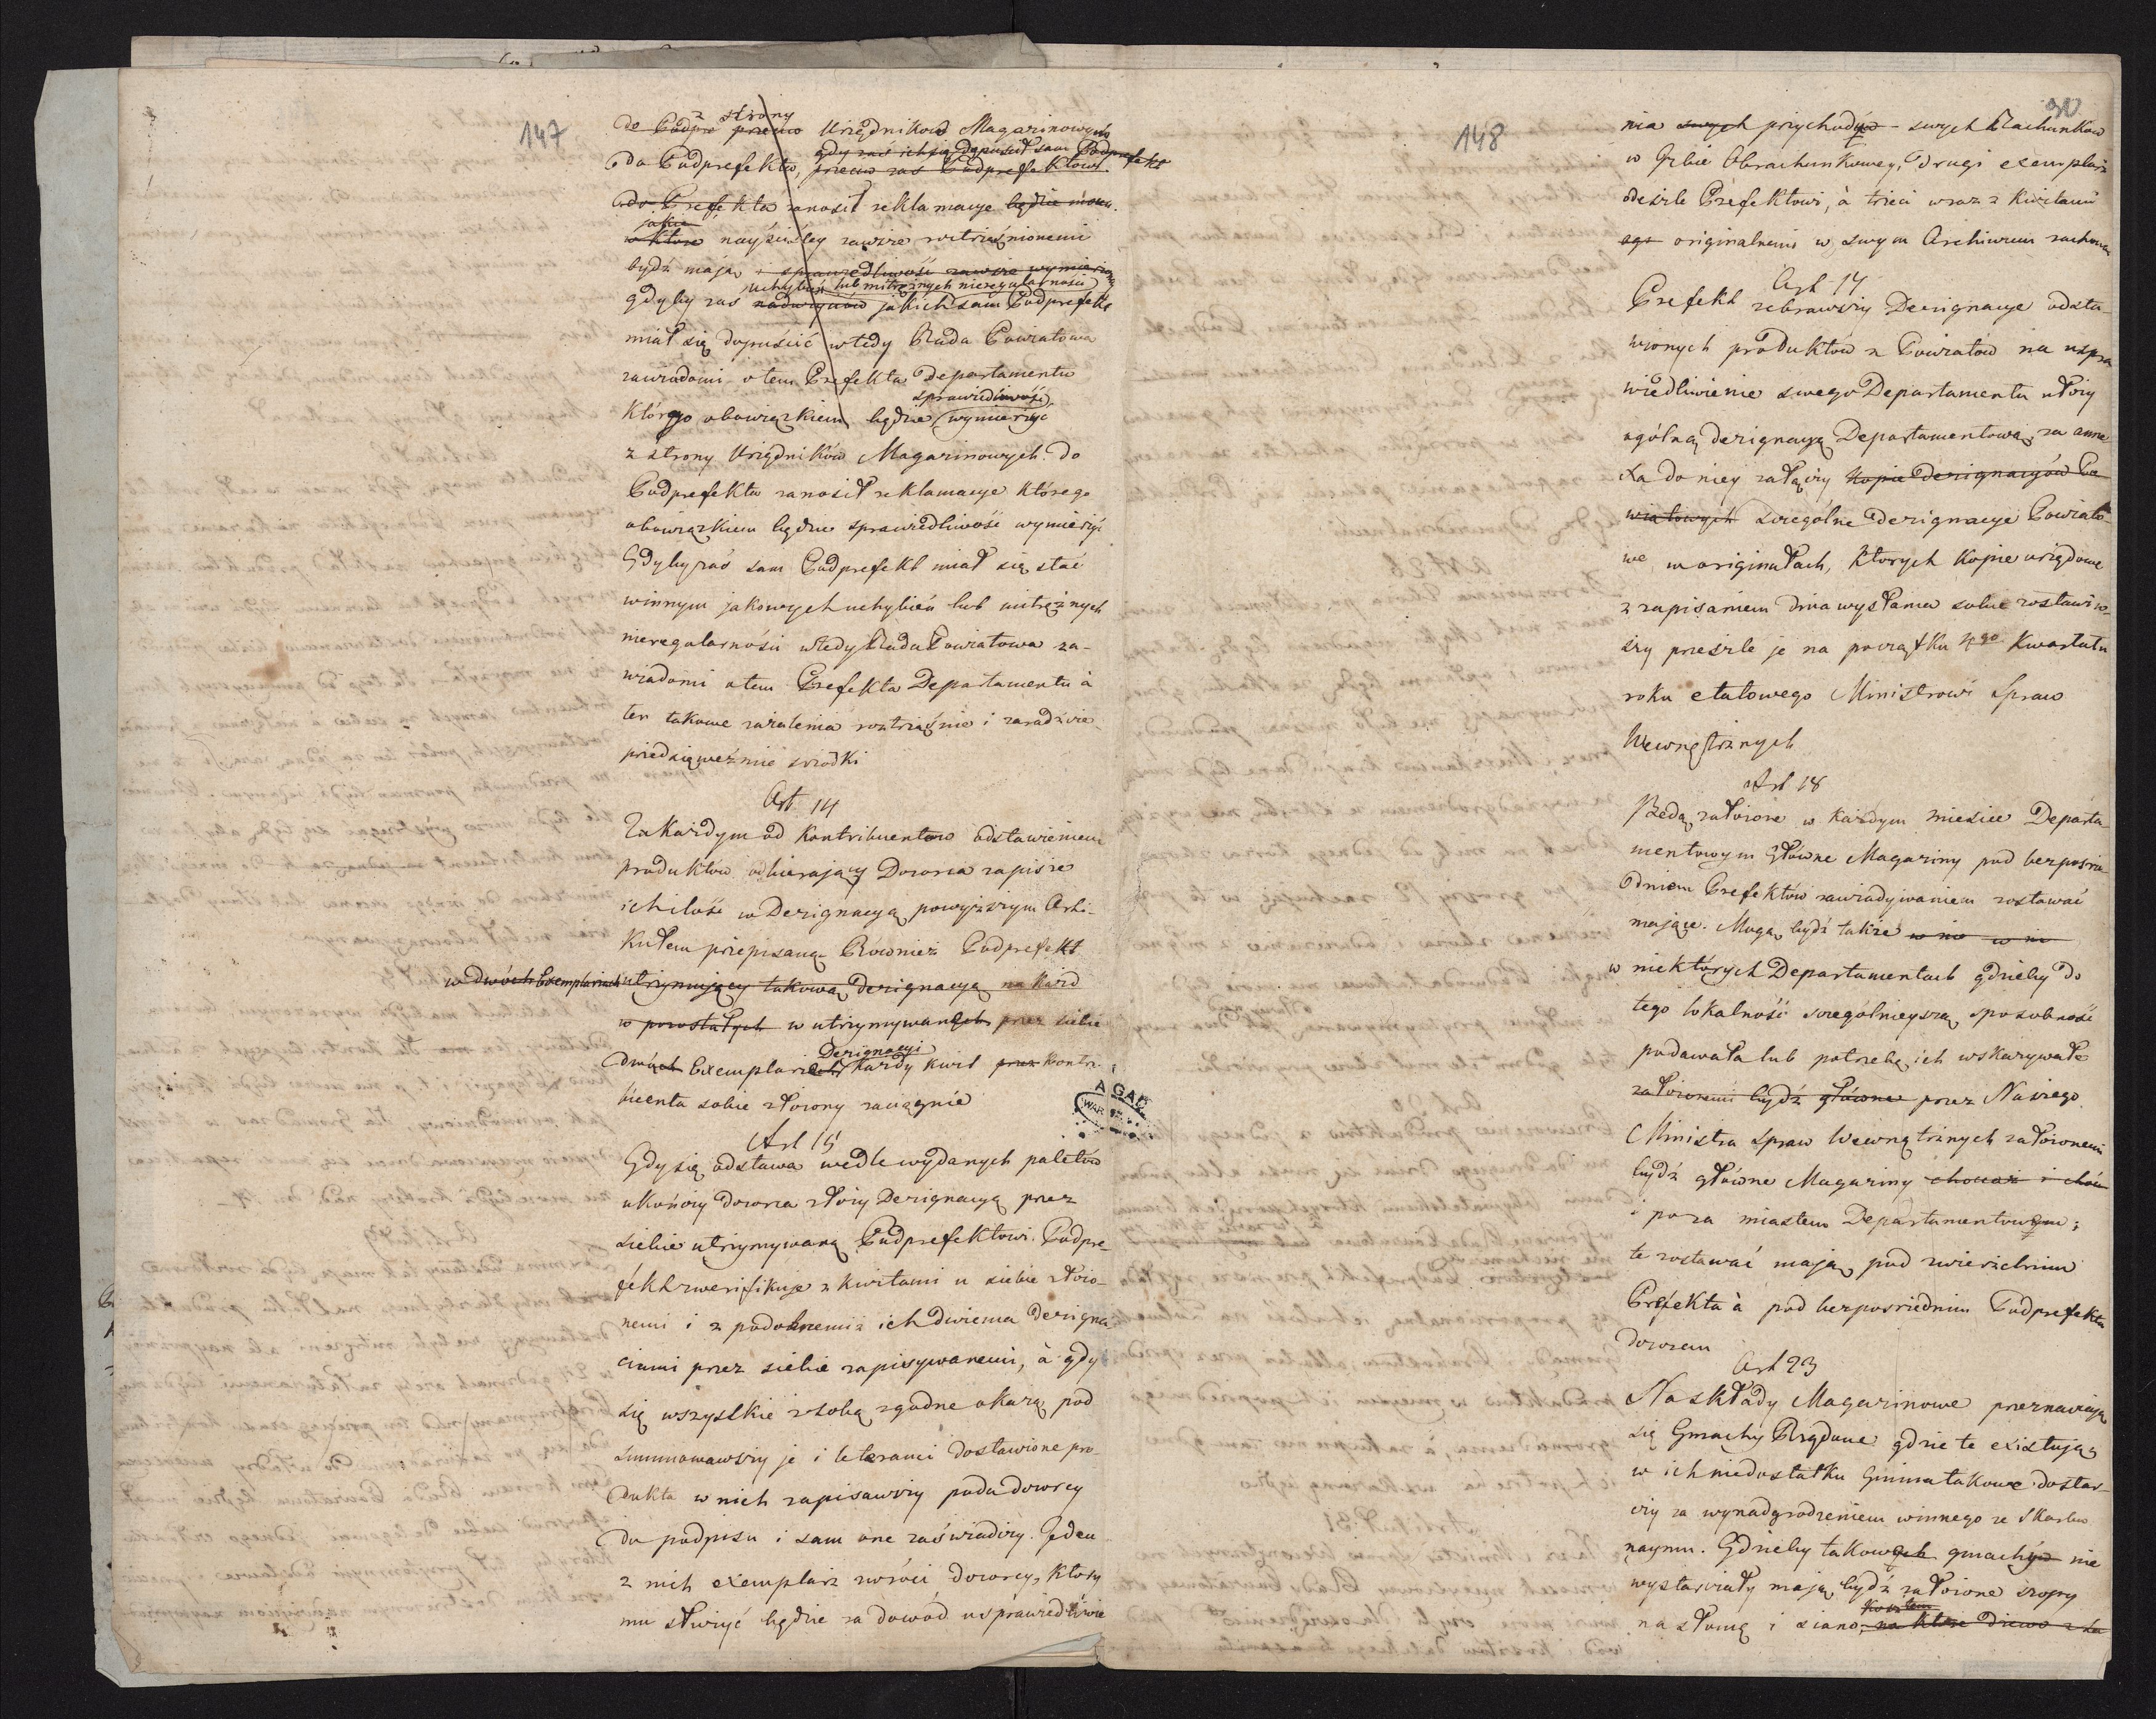 147
z strony
do Podpre przeciw Urzędników Magazinowych
gdy zaś ich się dopuścił sam Podprefekt
do Podprefekta, przeciw zas Podprefektowi
do Prefekta zanosił reklamacye będzie mocen.
jakie
o które nayściśley zawsze roztrząśnionemi
bydź mają i sprawiedliwość zawsze wymierzona
uchybień lub mitrężnych nieregularności
gdyby zas nadużyciów jakich sam Podprefekt
miał się dopuścić wtedy Rada Powiatowa
zawiadomi o tem Prefekta Departamentu
sprawiedliwość
którego obowiązkiem będzie wymierzyć
z strony Urzędników Magazinowych do
Podprefekta zanosił reklamacye którego
obowiązkiem będzie sprawiedliwość wymierzyć
Gdyby zaś sam Podprefekt miał się stać
winnym jakowych uchybień lub mitrężnych
nieregularności wtedy Rada Powiatowa za-
wiadomi o tem Prefekta Departamentu à
ten takowe zażalenia roztrząśnie i zaradźcze
przedsięweźmie srzodki
Art. 14
Za każdym od kontribuentow odstawieniem
produktów odbierający Dozorca zapisze
ich ilość w Dezignacyą powyższym Arti-
kułem przepisaną Również Podprefekt
w dwóch Exemplarzach utrzymujący takową Dezignacyą na każd
w pozostałych w utrzymywanych przez siebie
Dezignacyi
dwóch Exemplarzach każdy kwit przez kontri-
buenta sobie złożony zaciągnie
Art 15
Gdy się odstawa wedle wydanych paletów
ukończy dozorca złoży Dezignacyą przez
siebie utrzymywaną Podprefektowi. Podpre-
fekt zwerifikuje z kwitami u siebie złożo-
nemi i z podobnemiż ich dwiema dezigna
ciami przez siebie zapisywanemi, à gdy
się wszystkie z sobą zgodne okażą pod
summowawszy je i literami dostawione pro-
dukta w nich zapisawszy poda dozorcy
do podpisu i sam one zaświadczy. Jeden
z nich exemplarz zwróci dozorcy, który
mu służyć będzie za dowód usprawiedliwie
AGAD
WAR
148
90
nia swych przychodów swych Rachunków
w Izbie Obrachunkowey, drugi exemplarz
odeszle Prefektowi, à trzeci wraz z kwitami
ego originalnemi w swym Archiwum zachowa
Art 17
Prefekt zebrawszy Dezignacye odsta-
wionych produktów z Powiatów na uspra
wiedliwienie swego Departamentu ułoży
ogólną dezignacyą Departamentową, za anne
xa do niey załączy kopie dezignacyów Po
wiatowych szczególne dezignacye Powiato-
we w originałach, których kopie urzędowe
z zapisaniem dnia wysłania sobie zostawiw-
szy prześzle je na początku 4go kwartału
roku etatowego Ministrowi Spraw
Wewnętrznych
Art 18
Będą założone w każdym mieście Departa-
mentowym główne Magaziny pod bezposrze
dniem Prefektów zawiadywaniem zostawać
mające. Mogą bydź także w nie w ni
w niektórych Departamentach gdzieby do
tego lokalność szczególnieyszą sposobność
podawała lub potrzebę ich wskazywała
założonemi bydź główne przez Naszego
Ministra Spraw Wewnętrznych założonemi
bydź główne Magaziny chociaż i choć
i poza miastem Departamentowym;
te zostawać mają pod zwierzchnim
Prefekta à pod bezposrzednim Podprefekta
dozorem
Art 23
Na składy Magazinowe przeznaczają
się Gmachy Rządowe gdzie te existują
w ich niedostatku Gmina takowe dostar-
czy za wynadgrodzeniem winnego ze Skarbu
naymu. Gdzieby takowych gmachów nie
wystarczały mają bydź założone szopy
kosztem
na słomę i siano, na które drzewo z la